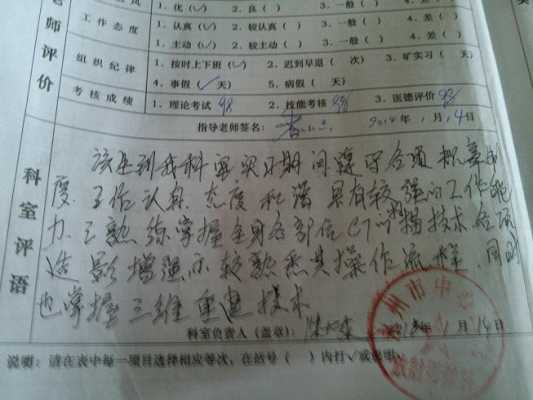 1、优（✓） 2、良（ ） 3、一般（ ） 4、差（ ）
师评价
工作态度
1、认真（✓） 2、较认真（ ） 3、一般（ ） 4、差（ ）
1、主动（✓） 2、较主动（ ） 3、一般（ ） 4、差（ ）
组织纪律
1、按时上下班（✓） 2、迟到早退（ 次） 3、旷实习（ 天）
4、事假（✓ 天） 5、病假（ 天）
考核成绩
1、理论考试 98 2、技能考核 98 3、医德评价 98
指导老师签名： 2014年 1月14日
科室评语
该生到我科室实习期间遵守各项规章制
度、工作认真、态度和蔼 具有较强的工作能
力、已熟练掌握全身各部位CT扫描技术 各项
造影增强亦较熟悉其操作流程、同时
也掌握三维重建技术
科室负责人（盖章）： 1月14日
州市中心
说明：请在表中每一项目选择相应等次，在括号（ ）内打√或说明。